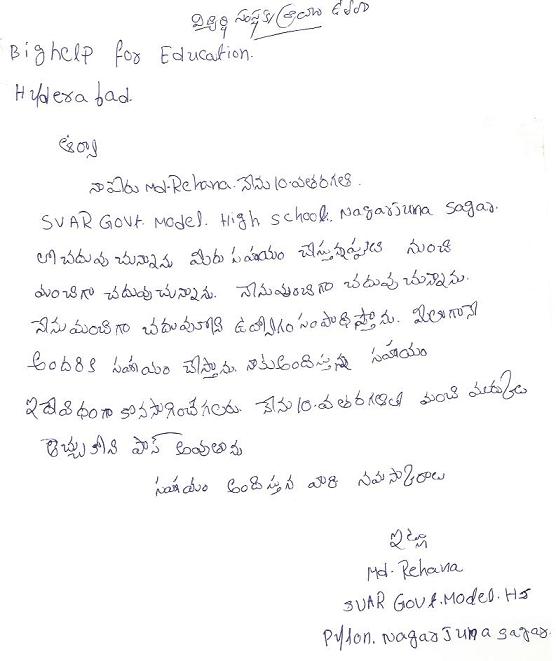 విద్యార్థి సంస్థకు వ్రాయు లేఖ
Bighelp for Education.
Hyderabad.
ఆర్యా
నా పేరు Md-Rehana. నేను 10-వతరగతి.
SVAR GOVt. Model. High School. Nagarjuna Sagar.
లో చదువు చున్నాను మీరు సహాయం చేస్తున్నప్పటి నుంచి
మంచిగా చదువు చున్నాను. నేను మంచిగా చదువు చున్నాను.
నేను మంచిగా చదువుకొని ఉద్యోగం సంపాధిస్తాను. మీలాగానే
అందరికి సహాయం చేస్తాను. నాకు అందిస్తున్న సహాయం
ఇదేవిధంగా కొనసాగించగలరు. నేను 10-వ తరగతిలో మంచి మార్కులు
తెచ్చుకొని పాస్ అవుతాను
సహాయం అందిస్తున వారికి నమస్కారాలు
ఇట్లు
Md. Rehana
SVAR GOVt. Model. HS
Pylon. Nagar Juna sagar.